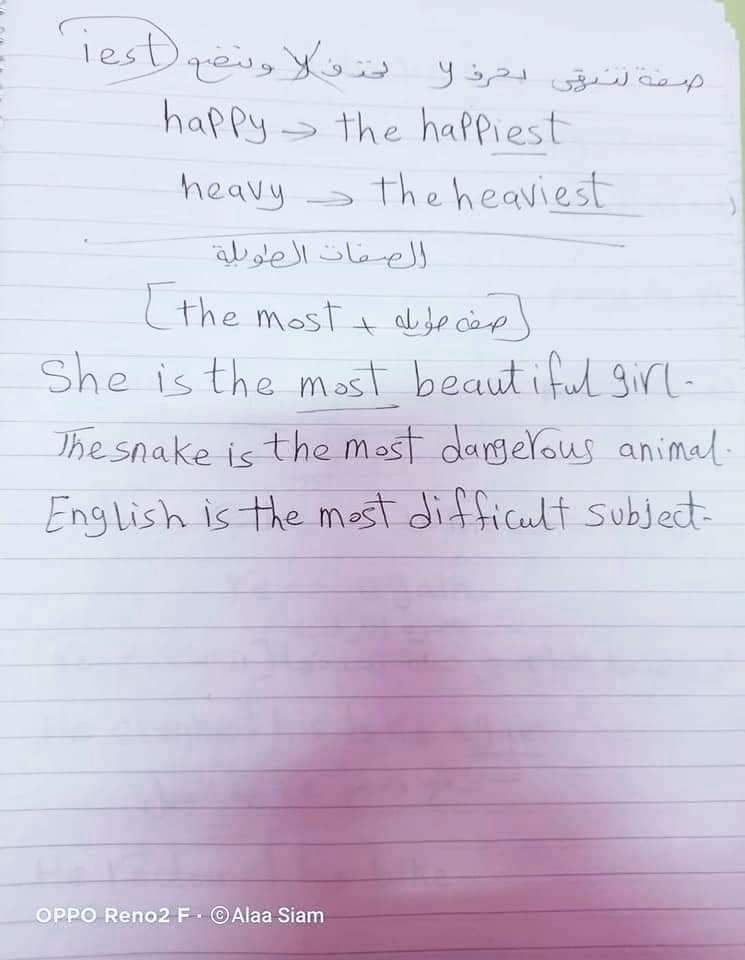 صفة تنتهي بحرف y نحذف لا ونضع (iest
happy → the happiest
heavy → the heaviest
الصفات الطويلة
[the most + صفه طويله]
She is the most beautiful girl.
The snake is the most dangerous animal.
English is the most difficult subject.
OPPO Reno2 F · ©Alaa Siam